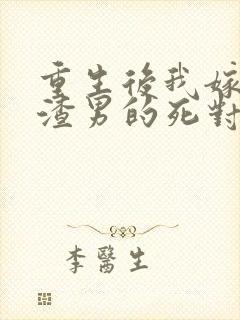 重生後我嫁
渣男的死對
李醫生